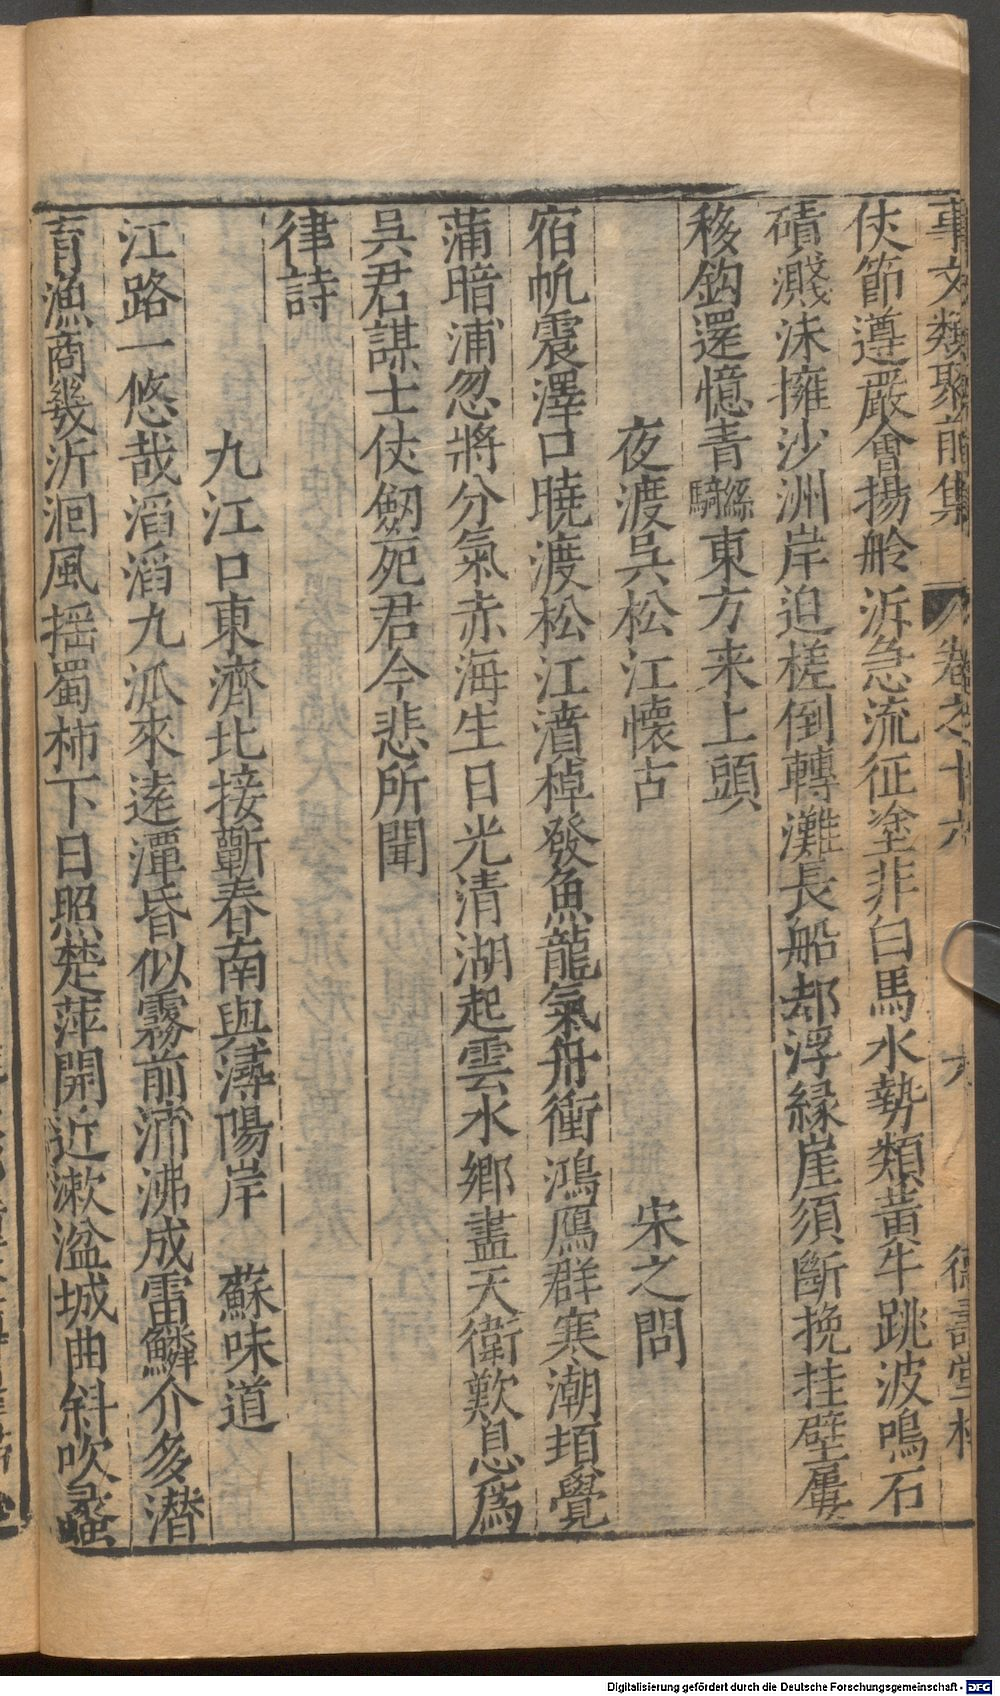 事文類聚前集 卷之十六 六 德壽堂梓
仗節遵嚴會揚舲泝急流征塗非白馬水勢類黃牛跳波鳴石
磧濺沫擁沙洲岸迫槎倒轉灘長船却浮緣崖須斷挽挂壁屢
移鈎還憶青絲騎東方来上頭
夜渡吳松江懷古 宋之問
宿帆震澤口曉渡松江濆棹發魚龍氣舟衝鴻鴈群寒潮頓覺
蒲暗浦忽將分氣赤海生日光清湖起雲水郷盡天衛歎息爲
吳君謀士仗劔死君今悲所聞
律詩
九江口東濟北接蘄春南與潯陽岸 蘇味道
江路一悠哉滔滔九派來逺潭昏似霧前浦沸成雷鱗介多潜
育漁商幾泝洄風揺蜀柿下日照楚萍開近漱湓城曲斜吹蠡
Digitalisierung gefördert durch die Deutsche Forschungsgemeinschaft - DFG